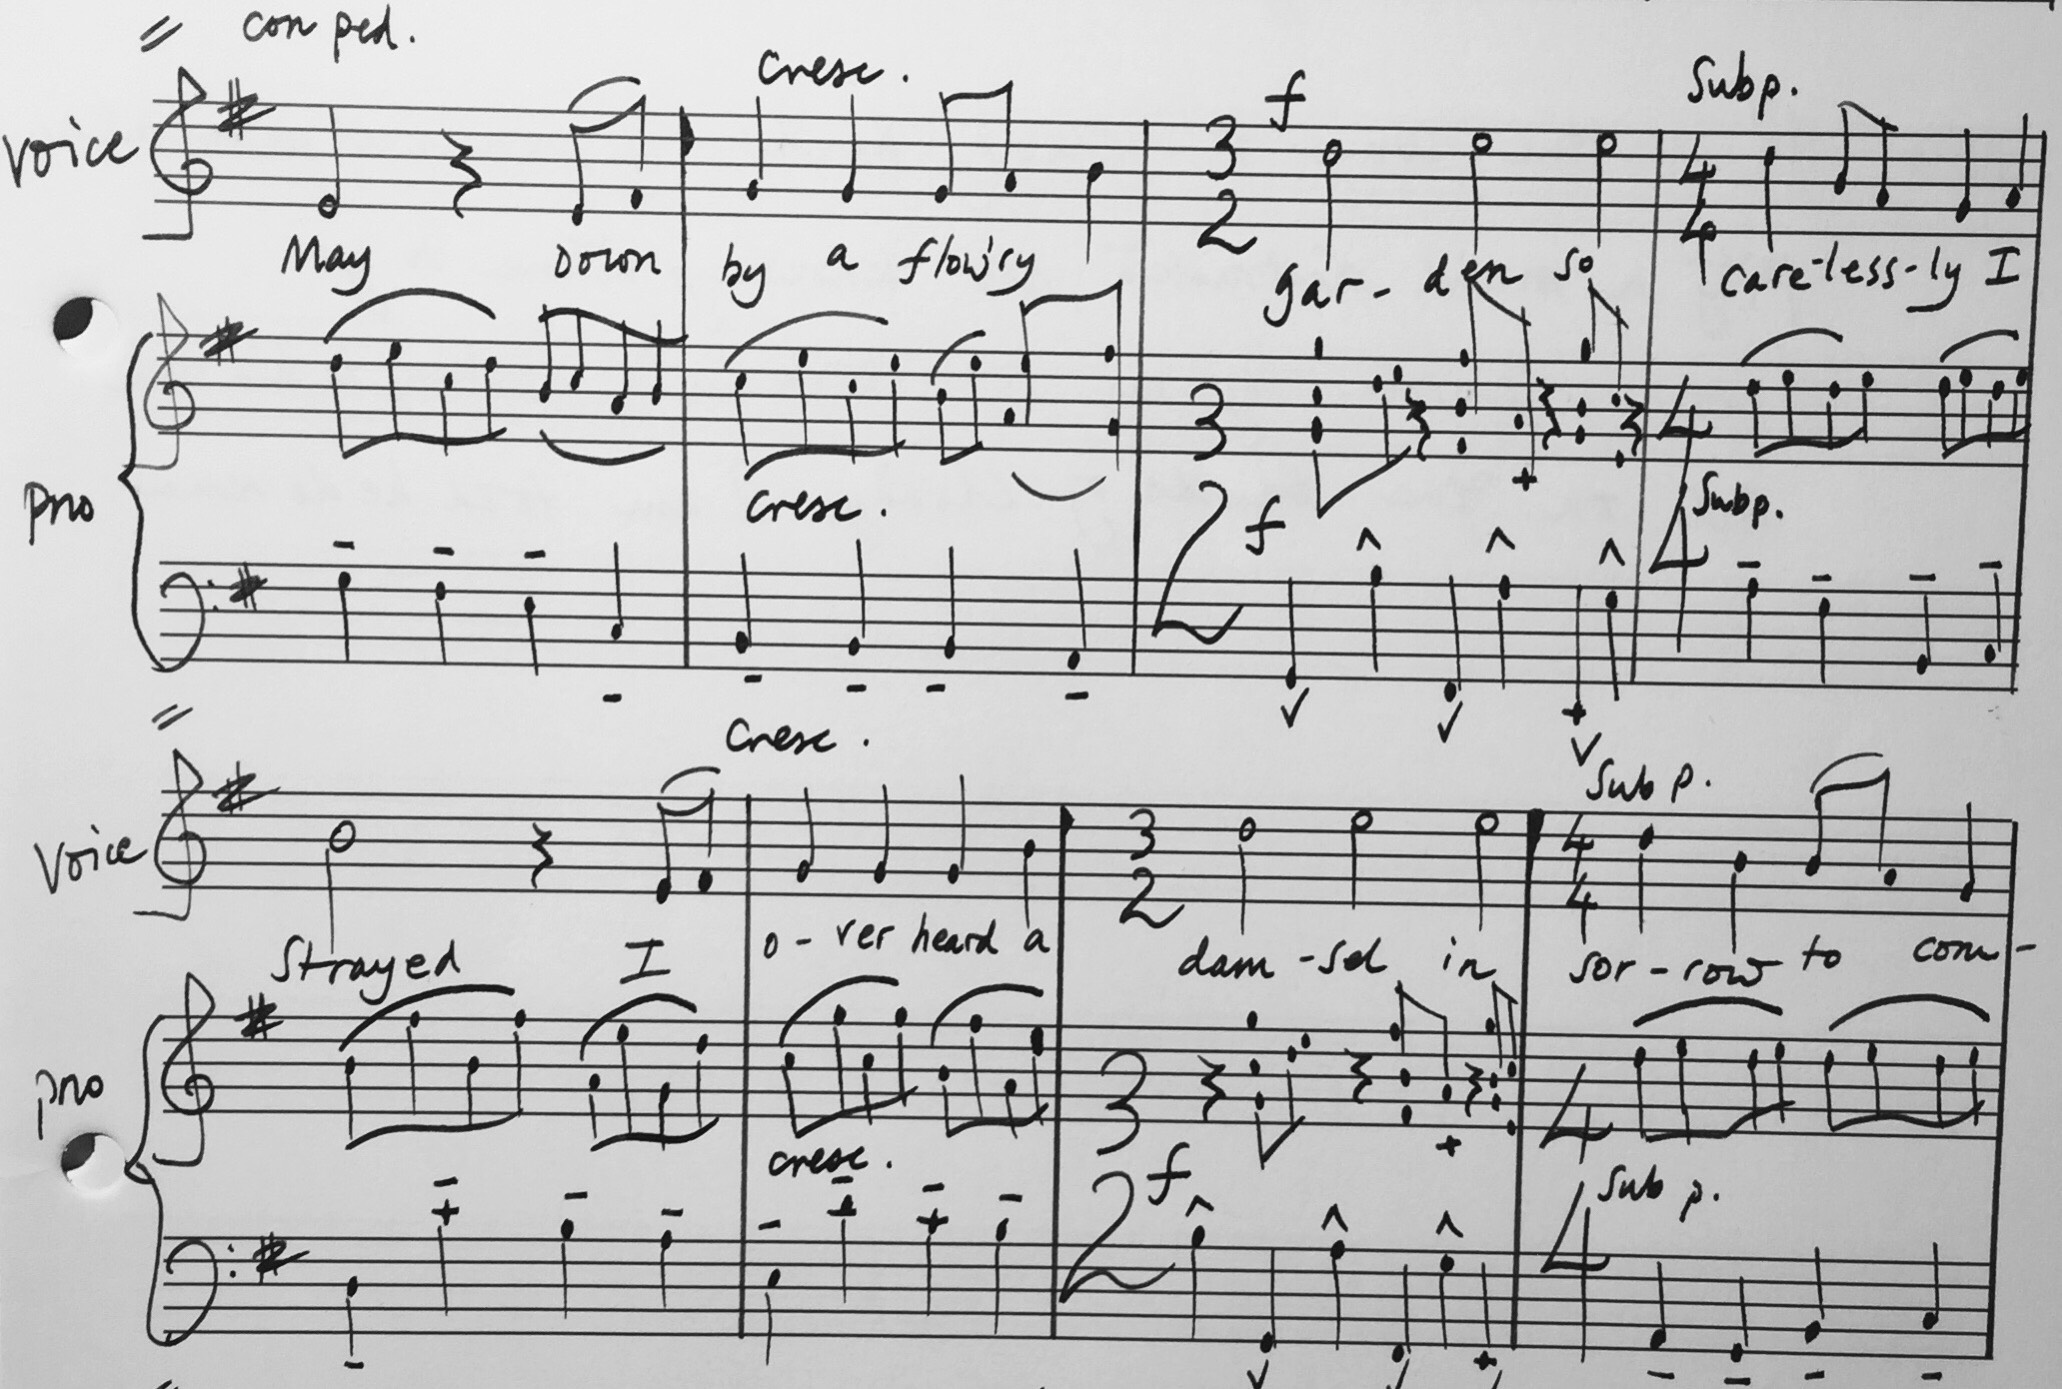 con ped.
cresc. f Subp.
voice 3 2 4 4
May Down by a flow'ry gar- den so care-less-ly I
pno 3 2 4 4
cresc. f Subp.
cresc. Sub p.
Voice 3 2 4 4
Strayed I o-ver heard a dam-sel in sor-row to com-
pno 3 2 4 4
cresc. f Sub p.